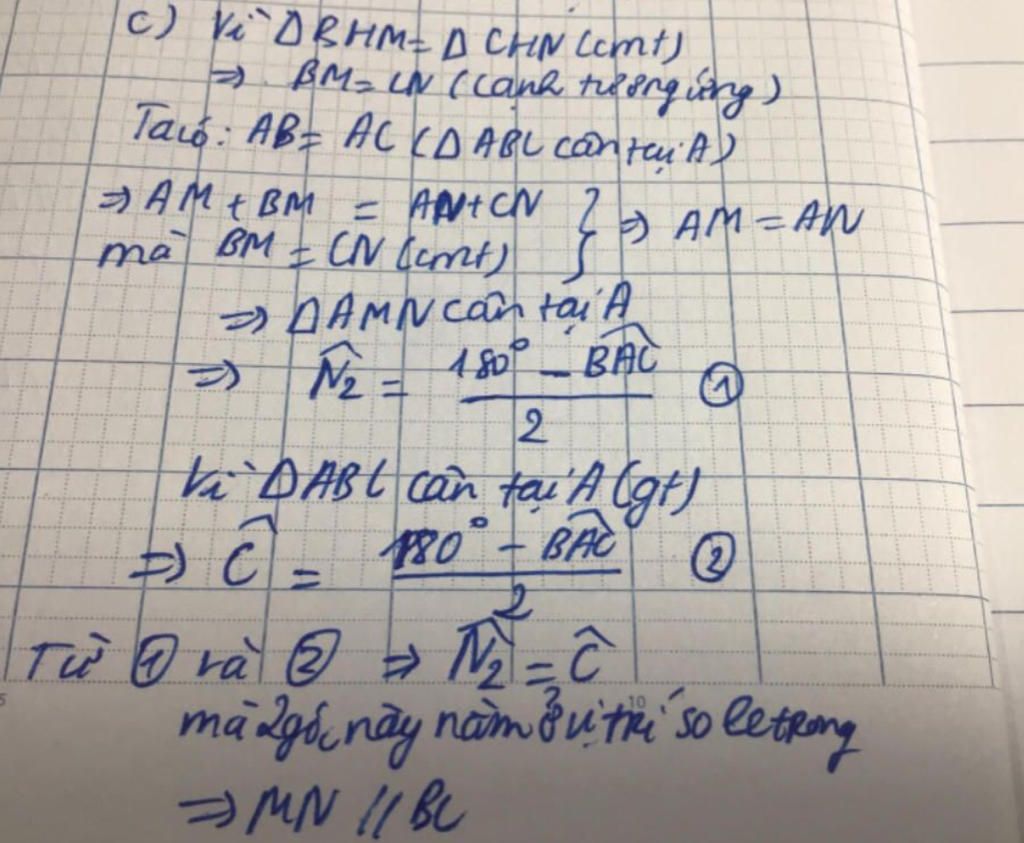 c) Vì ΔBHM = ΔCHN (cmt)
⇒ BM = CN (cạnh tương ứng)
Ta có: AB = AC (ΔABC cân tại A)
⇒ AM + BM = AN + CN
mà BM = CN (cmt) } ⇒ AM = AN
⇒ ΔAMN cân tại A
⇒ N̂₂ = (180° - BAC^)/2 ①
Vì ΔABC cân tại A (gt)
⇒ Ĉ = (180° - BAC^)/2 ②
Từ ① và ② ⇒ N̂₂ = Ĉ
mà 2 góc này nằm ở vị trí so le trong
⇒ MN // BC
5
10